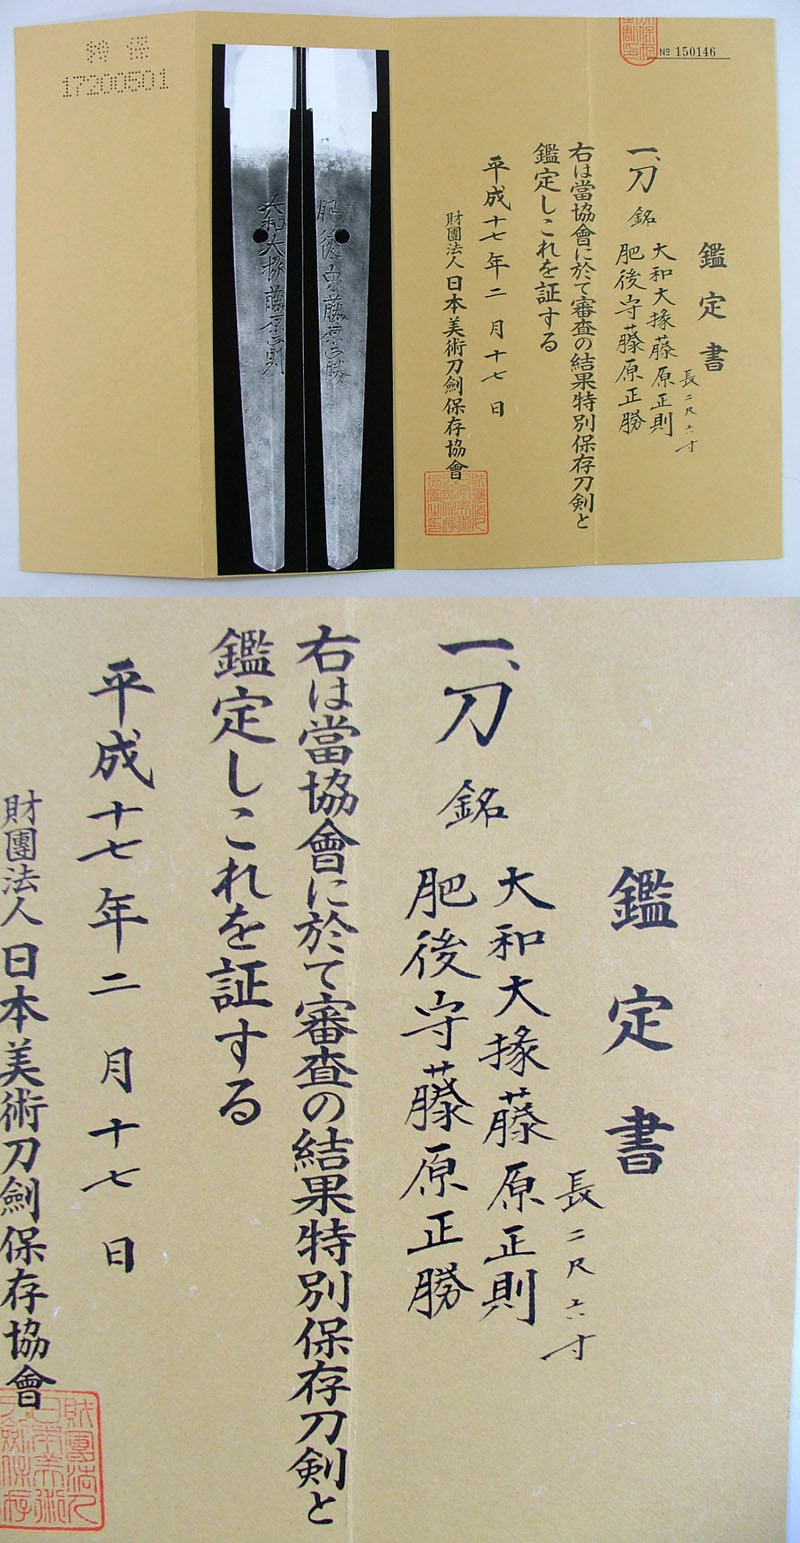 特保
17200501
大和大掾藤原正則
肥後守藤原正勝
№ 150146
鑑定書
長二尺六寸
一、刀 銘
大和大掾藤原正則
肥後守藤原正勝
右は當協會に於て審査の結果特別保存刀剣と
鑑定しこれを証する
平成十七年二月十七日
財團法人日本美術刀劍保存協會
鑑定書
長二尺六寸
一、刀 銘
大和大掾藤原正則
肥後守藤原正勝
右は當協會に於て審査の結果特別保存刀剣と
鑑定しこれを証する
平成十七年二月十七日
財團法人日本美術刀劍保存協會